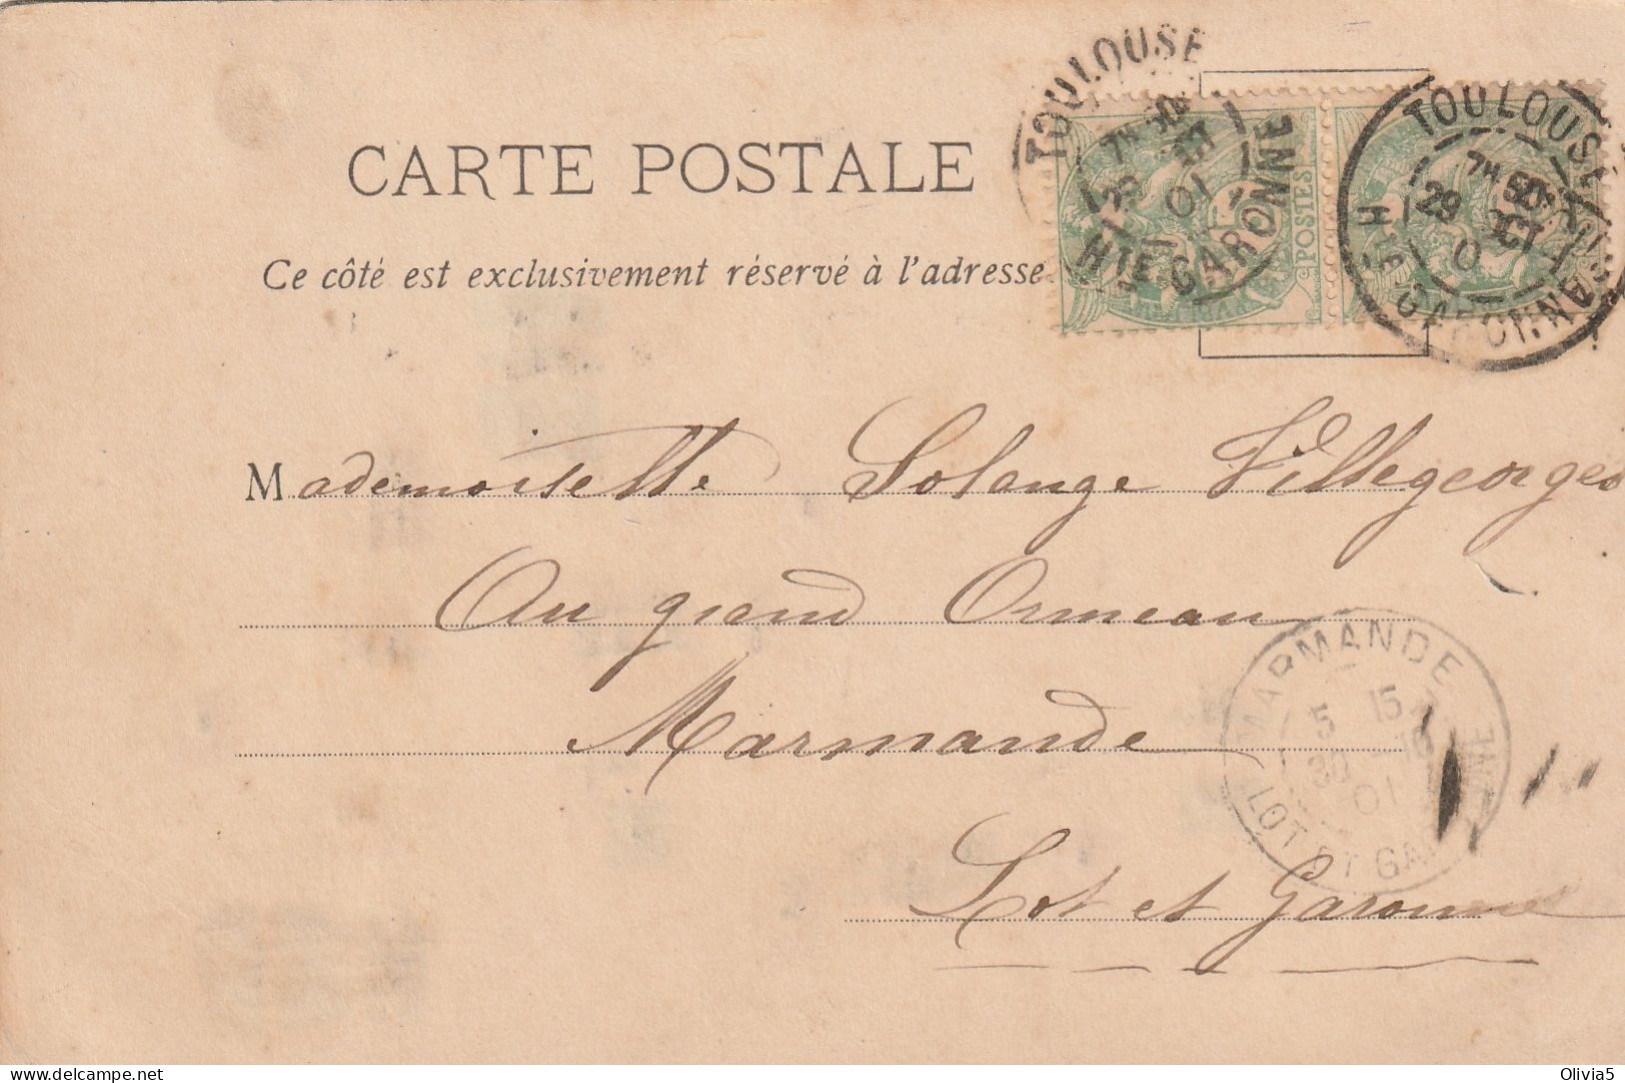 TOULOUSE
7H 50
29 OCT
01
HTE GARONNE
POSTES
TOULOUSE
7H 50
29 OCT
0
HTE GARONNE
CARTE POSTALE
Ce côté est exclusivement réservé à l'adresse
Mademoiselle Solange Villegeorges
Au grand Ormeau
Marmande
Lot et Garonne
MARMANDE
5 15
30 10
01
LOT ET GARONNE
delcampe.net
Olivia5